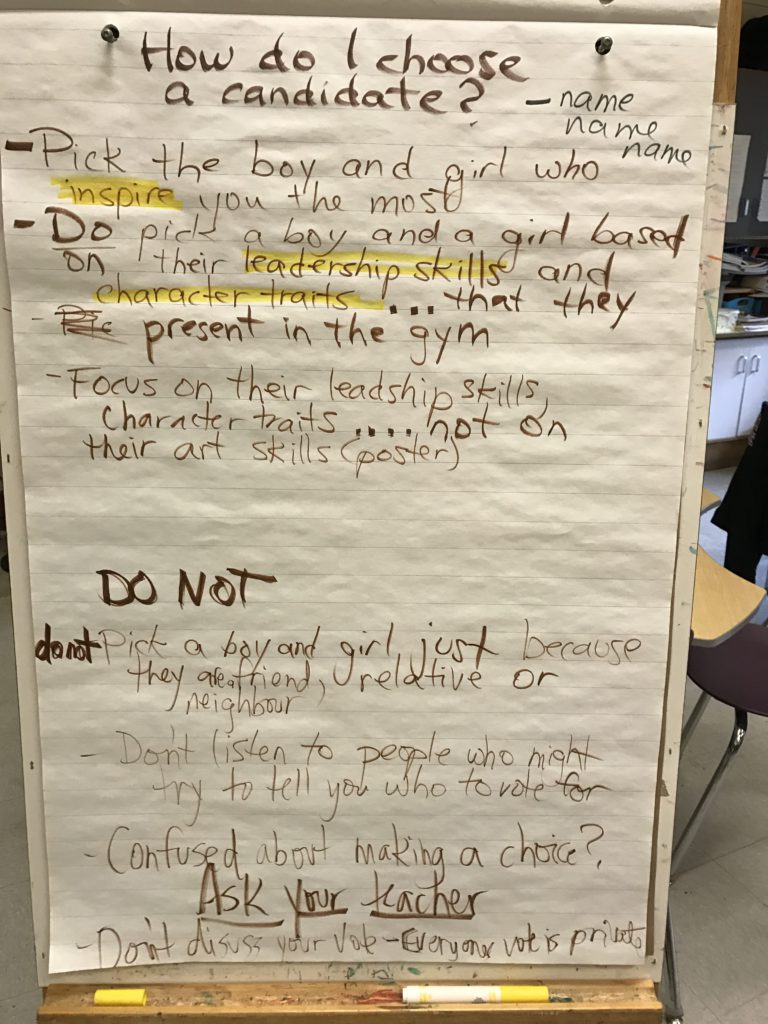 How do I choose
a candidate?
- name
name
name
- Pick the boy and girl who
inspire you the most
- Do pick a boy and a girl based
on their leadership skills and
character traits ... that they
- present in the gym
- Focus on their leadship skills,
character traits .... not on
their art skills (poster)
DO NOT
do not Pick a boy and girl just because
they are a friend, relative or
neighbour
- Don't listen to people who might
try to tell you who to vote for
- Confused about making a choice?
Ask your teacher
- Don't disuss your vote - Everyones vote is private